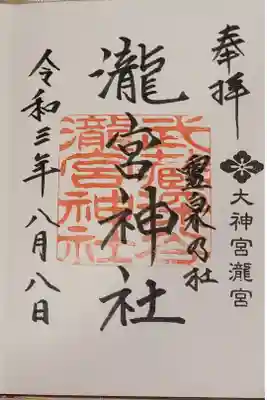 奉拝
大神宮瀧宮
霊泉乃社
瀧宮神社
武蔵深谷
瀧宮神社
令和三年八月八日